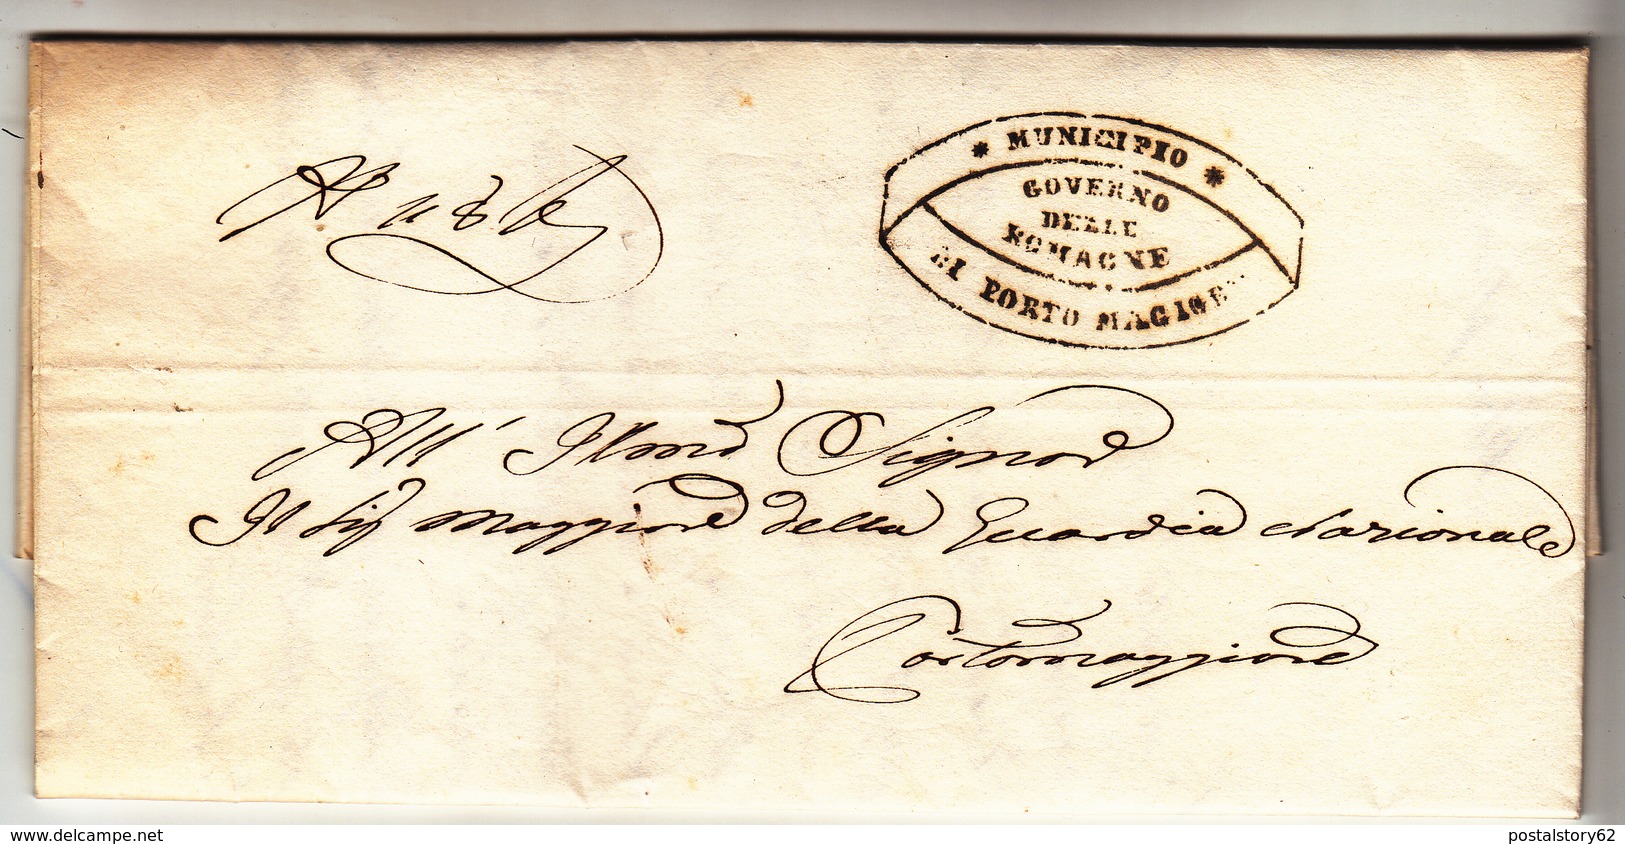 * MUNICIPIO *
GOVERNO
DELLE
ROMAGNE
DI PORTO MAGIORE
All' Illmo Signor
Il Sig Maggiore della Guardia Nazionale
Portomaggiore
www.delcampe.net
postalstory62